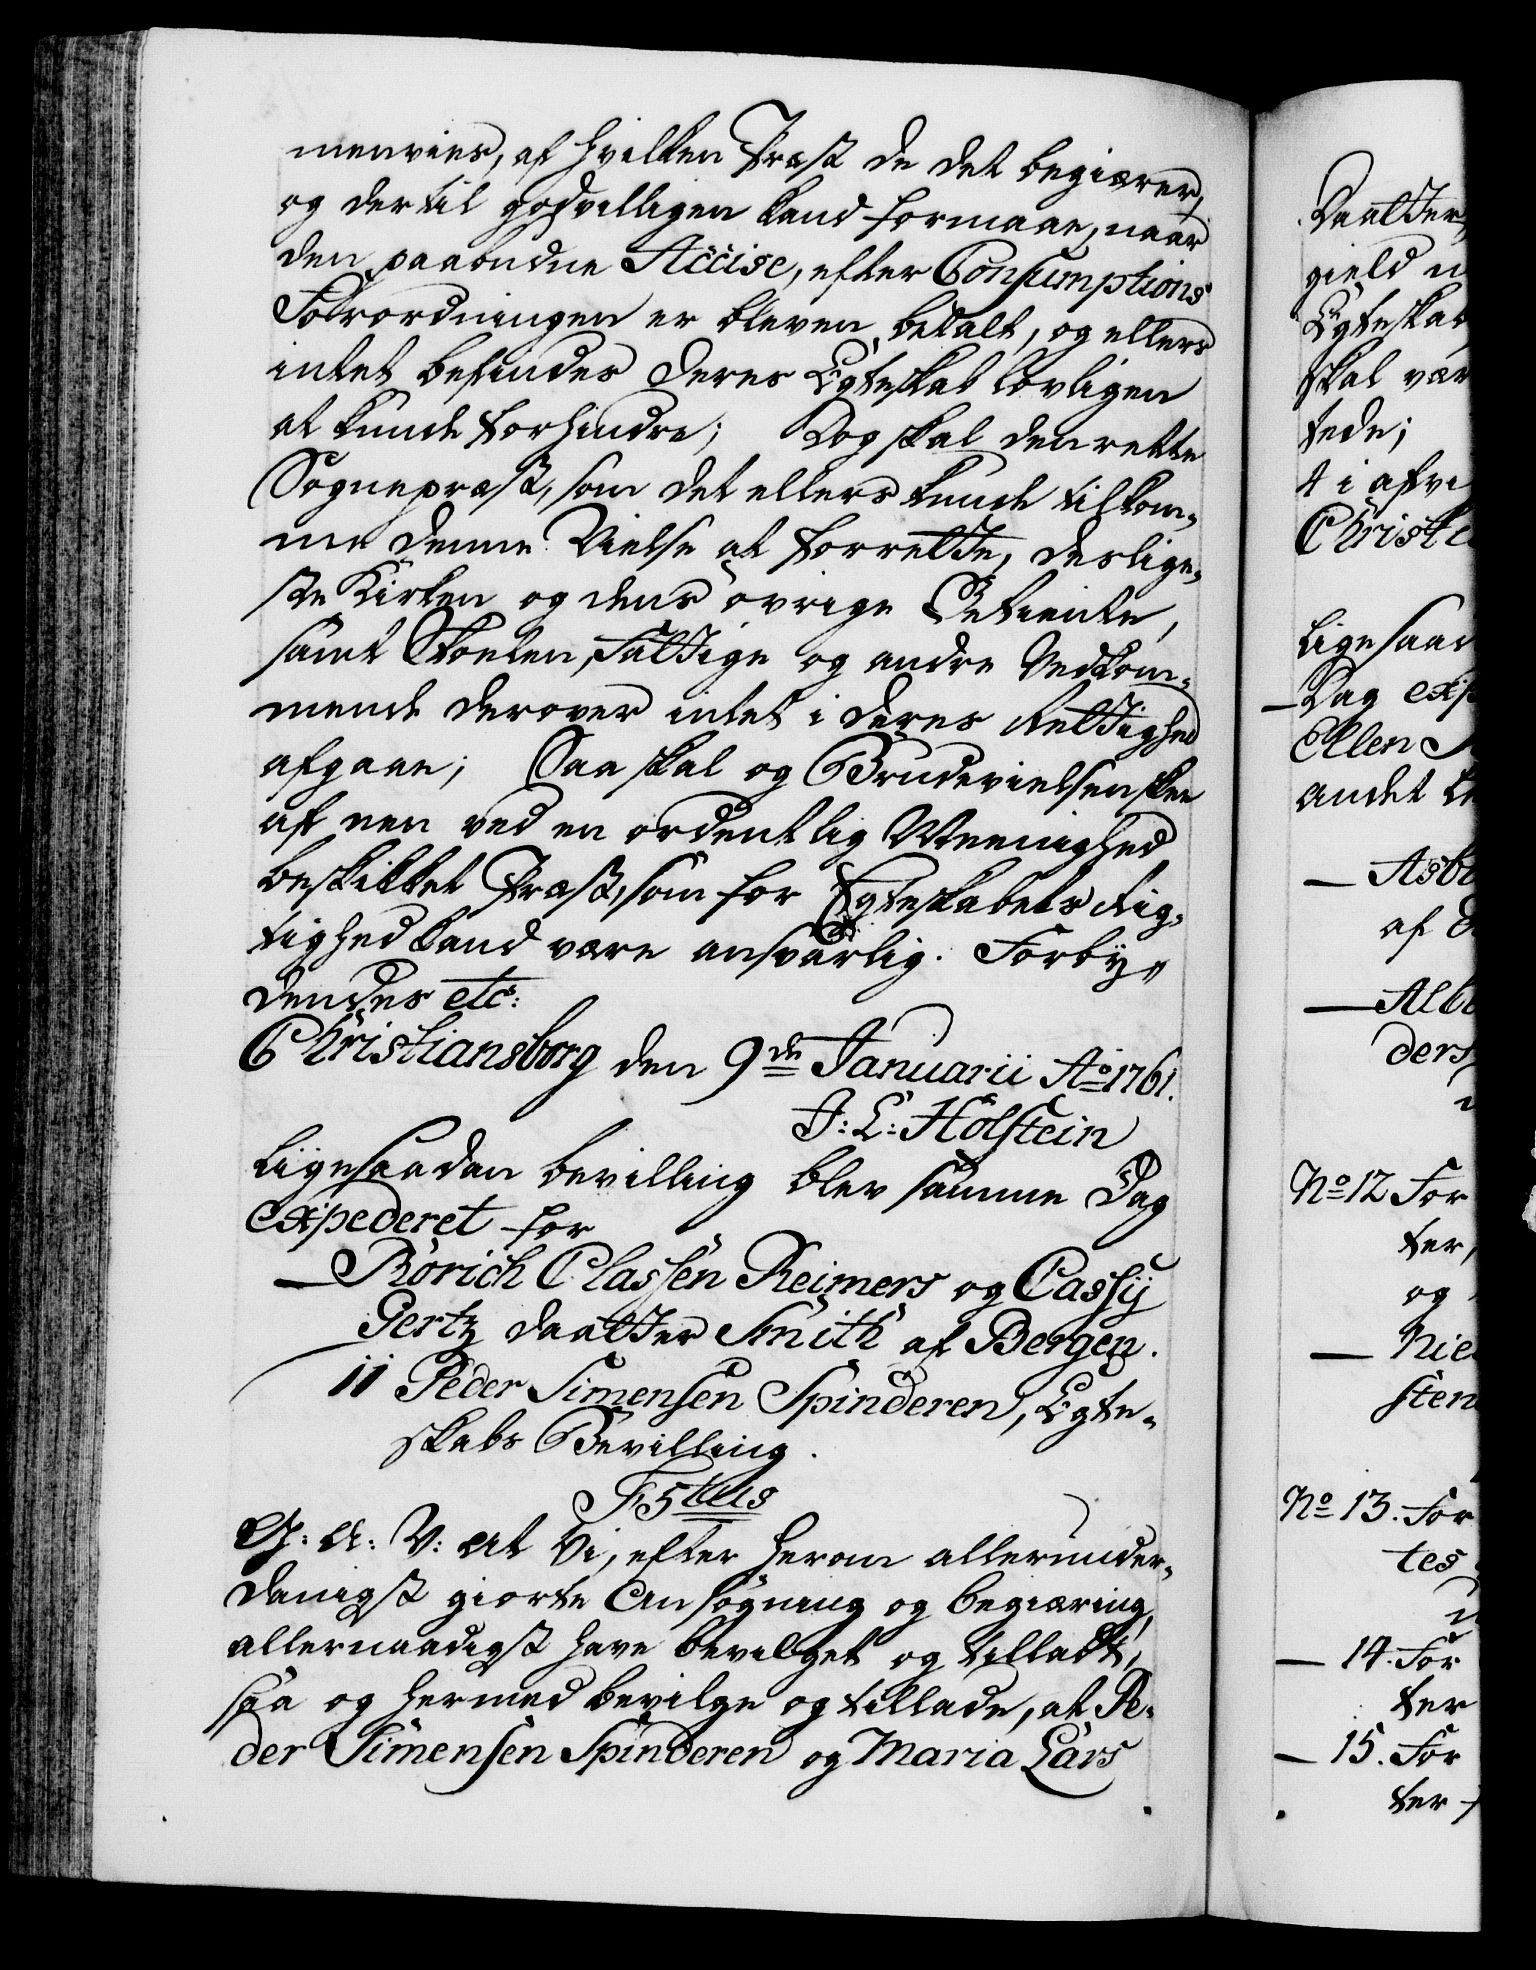 menvies, af hvilken Præst de det begiærer,
og dertil godvilligen kand formaae, naar
den paabudne Accise, efter Consumptions
Forordningen er bleven betalt, og ellers
intet befindes deres Egteskab lovligen
at kunde forhindre; Dog skal den rette
Sognepræst, som det ellers kunde tilkom-
me denne Vielse at forrette, deslige-
ste Kirken og dens övrige Betiente,
samt Skolen, Fattige og andre Vedkom-
mende derover intet i deres Rettighed
afgaae; Saa skal og Brudevielsen skee
af een ved en ordentlig Meenighed
beskikket Præst, som for Egteskabets Rig-
tighed kand være ansvarlig. Forby-
dendes etc:
Christiansborg den 9de Januarii Ao 1761.
J: L: Holstein
Ligesaadan bevilling blev samme Dag
expederet for
— Rörich Classen Reimers og Cassij
Gertz daatter Smith af Bergen.
11 Peder Simensen Spinderen, Egte-
skabs Bevilling.
F 5tus
G: A: V: at Vi, efter herom allerunder-
danigst giorte Ansögning og begiæring,
allernaadigst have bevilget og tilladt,
saa og hermed bevilge og tillade, at Pe-
der Simensen Spinderen og Maria Lars
Daatter,
gield
Egteskab
skal vær
tede;
4 i
Christe
Ligesaad
— Dag exp
Ellen
andet
—
af
—
ders
No 12 For
ter,
og
— Nie
sten
No 13. For
tes
— 14. For
ter
— 15. For
ter